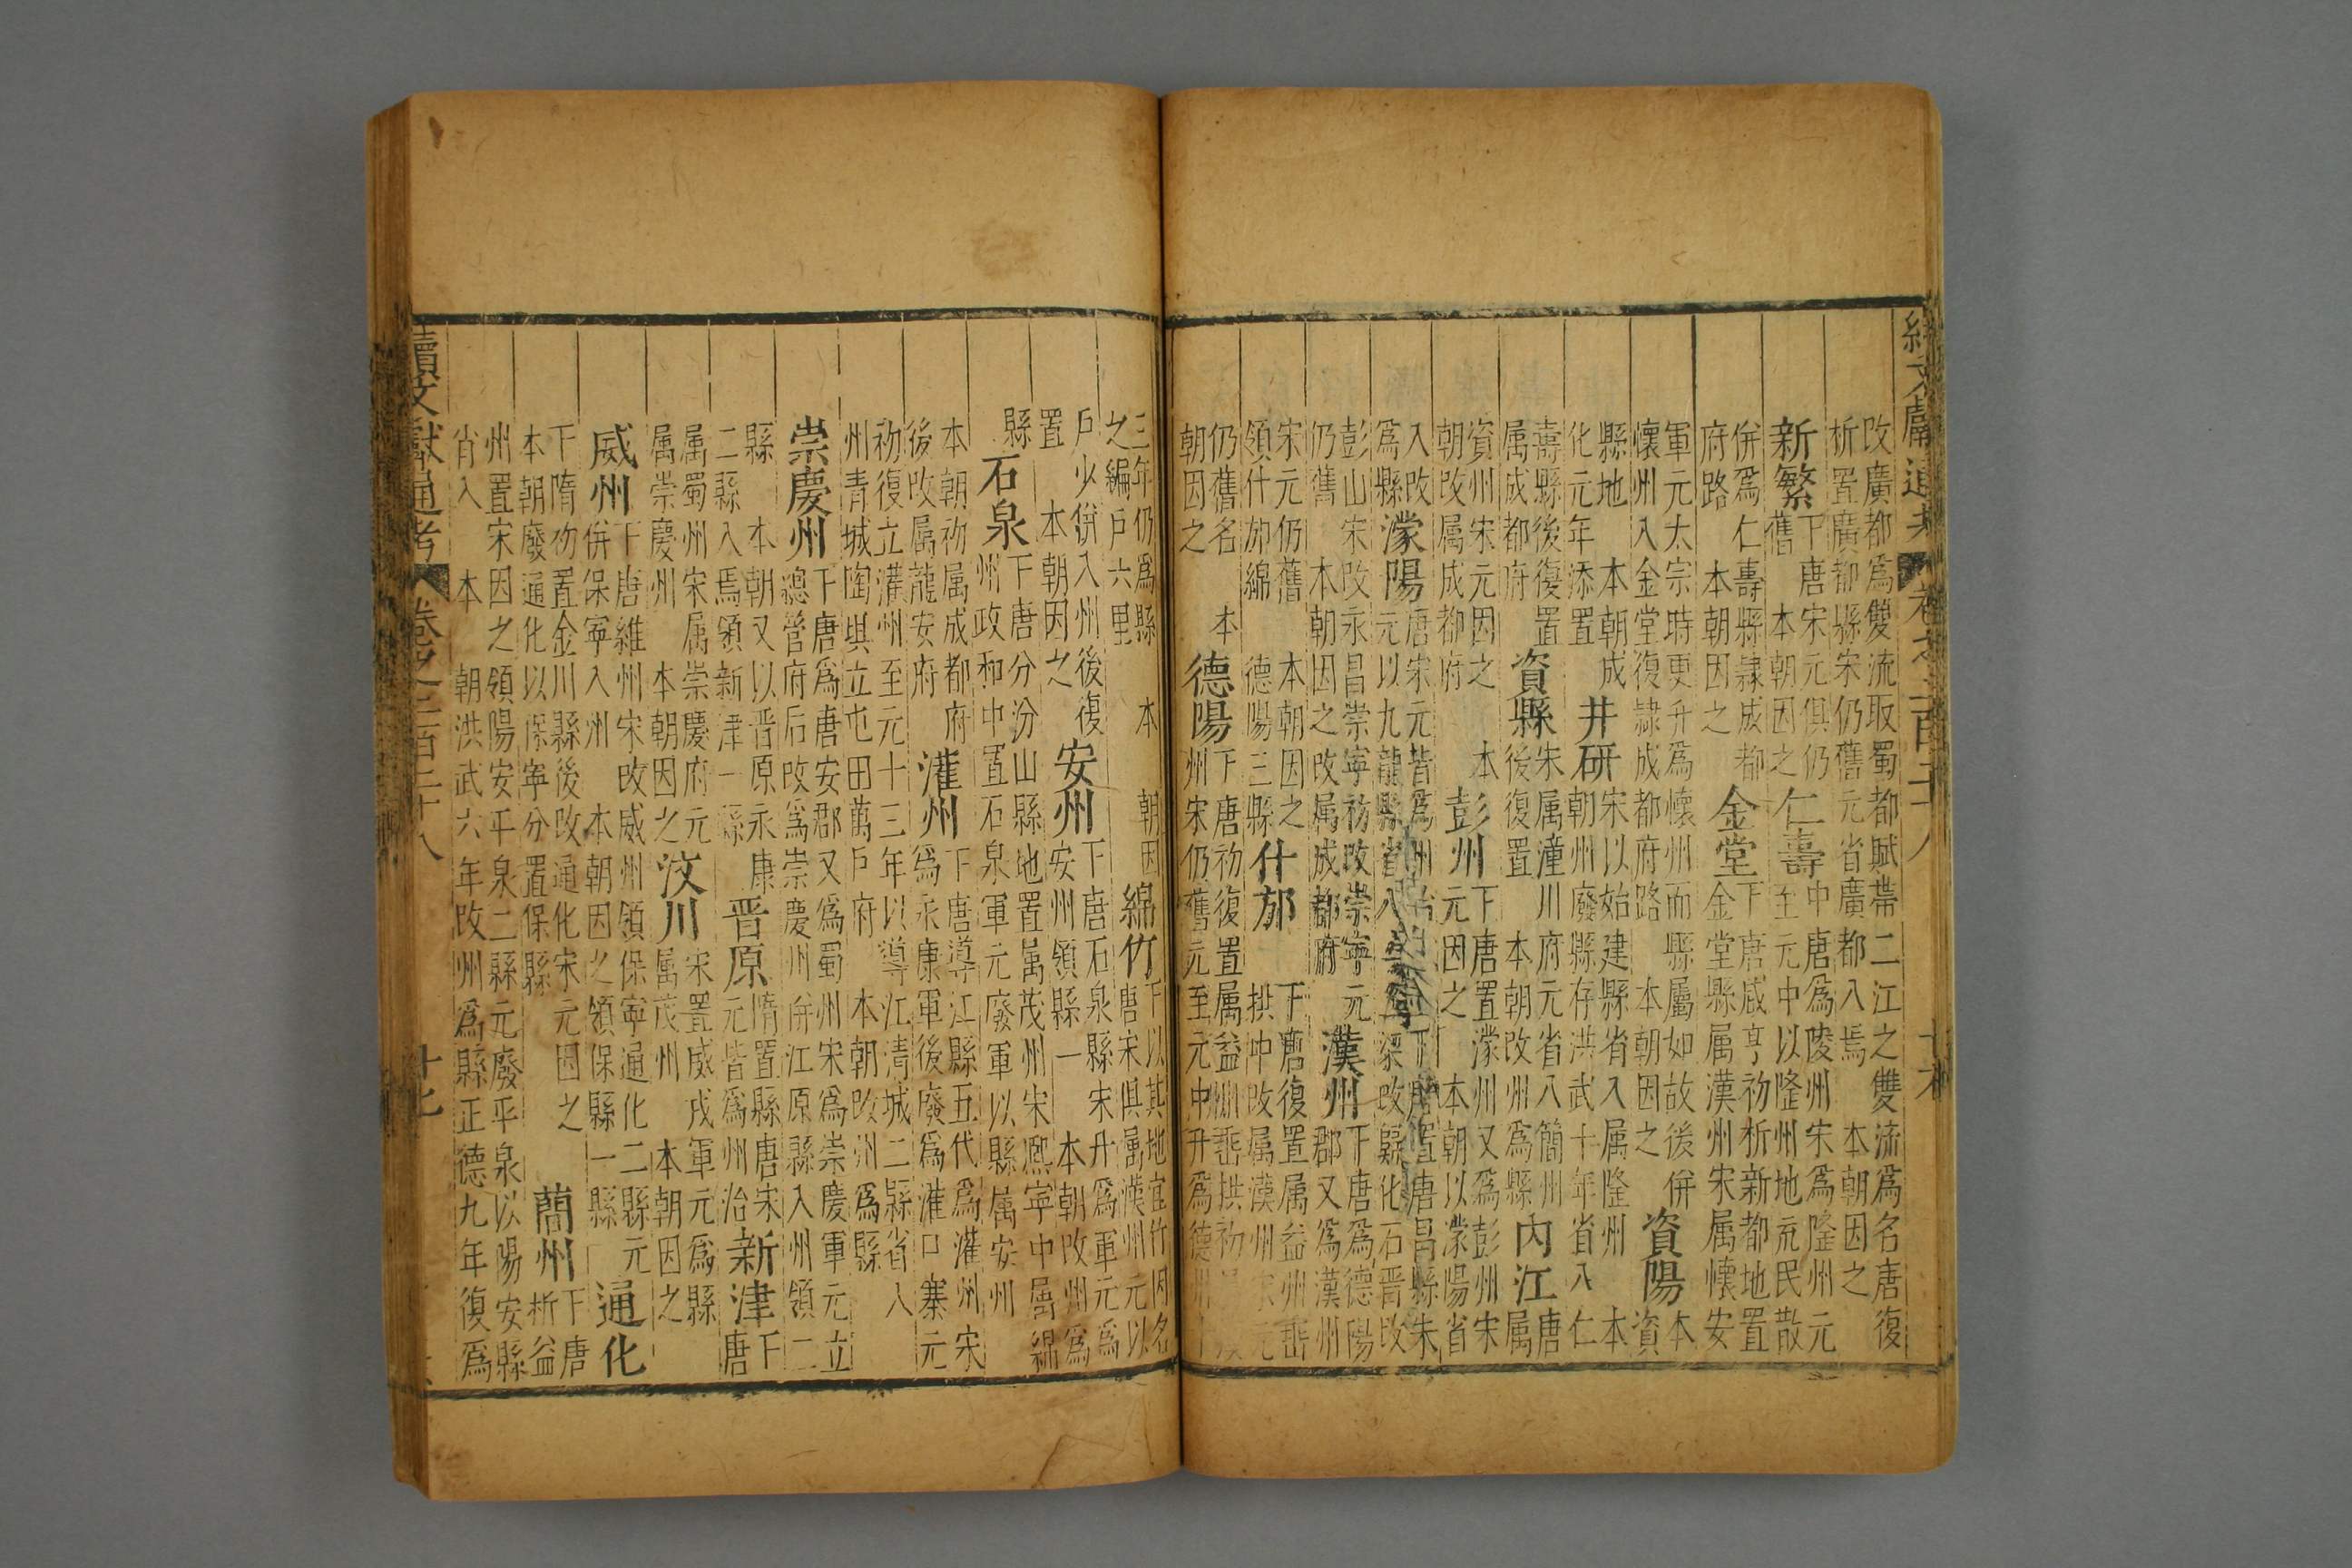 改廣都爲雙流取蜀都賦帶二江之雙流爲名唐復
析置廣都縣宋仍舊元省廣都入焉 本朝因之
新繁 下唐宋元俱仍
舊 本朝因之
仁壽 中唐爲陵州宋爲隆州元
至元中以隆州地荒民散
併爲仁壽縣隷成都
府路 本朝因之
金堂 下唐咸亨初析新都地置
金堂縣属漢州宋属懷安
軍元太宗時更升爲懷州而縣屬如故後併
懷州入金堂復隷成都府路 本朝因之
資陽 本
資
縣地 本朝成
化元年添置
井研 宋以始建縣省入属隆州 本
朝州廢縣存洪武十年省入仁
壽縣後復置
属成都府
資縣 宋属潼川府元省入簡州
後復置 本朝改州爲縣
内江 唐
属
資州宋元因之 本
朝改属成都府
彭州 下唐置濛州又爲彭州宋
元因之 本朝以濛陽省
入改
爲縣
濛陽 唐宋元皆爲州治
元以九龍縣省入
下唐置唐昌縣宋
改歸化石晋改
彭山宋改永昌崇寧初改崇寧元
仍舊 本朝因之改属成都府
漢州 下唐爲德陽
郡又爲漢州
宋元仍舊 本朝因之
領什邡綿 德陽三縣
什邡 下唐復置属益州垂
拱中改属漢州宋元
仍舊名 本
朝因之
德陽 下唐初復置属益州垂拱初
州宋仍舊元至元中升爲德州
三年仍爲縣 本 朝因
之編戶六里
綿竹 下以其地宜竹因名
唐宋俱属漢州元以
戶少併入州後復
置 本朝因之
安州 下唐石泉縣宋升爲軍元爲
安州領縣一 本朝改州爲
縣
石泉 下唐分汾山縣地置属茂州宋熈寧中屬綿
州政和中置石泉軍元廢軍以縣属安州
本朝初属成都府
後改属龍安府
灌州 下唐導江縣五代爲灌州宋
爲永康軍後廢爲灌口寨元
初復立灌州至元十三年以導江清城二縣省入
州青城陶垻立屯田萬戶府 本朝改州爲縣
崇慶州 下唐爲唐安郡又爲蜀州宋爲崇慶軍元立
總管府后改爲崇慶州併江原縣入州領二
縣 本朝又以晋原永康
二縣入焉領新津一縣
晋原 隋置縣唐宋
元皆爲州治
新津 下
唐
属蜀州宋属崇慶府元
属崇慶州 本朝因之
汶川 宋置威戎軍元爲縣
属茂州 本朝因之
威州 下唐維州宋改威州領保寧通化二縣元
併保寧入州 本朝因之領保縣一縣
通化
下隋初置金川縣後改通化宋元因之
本朝廢通化以保寧分置保縣
簡州 下唐
析益
州置宋因之領陽安平泉二縣元廢平泉以陽安縣
省入 本 朝洪武六年改州爲縣正德九年復爲
續文獻通考 卷之二百二十八 十七